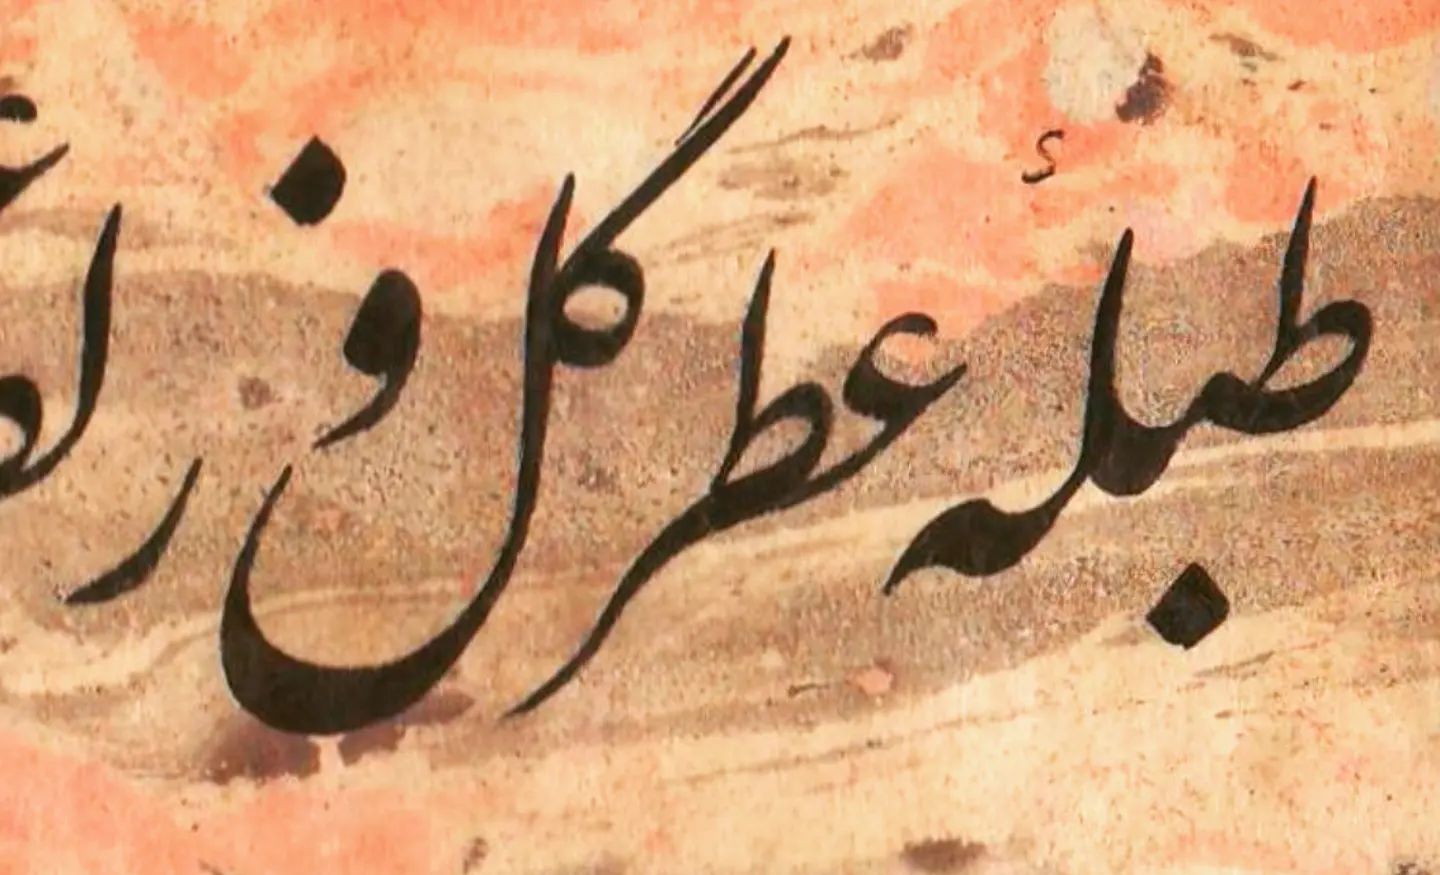 طبلهٔ عطر گل و زلف